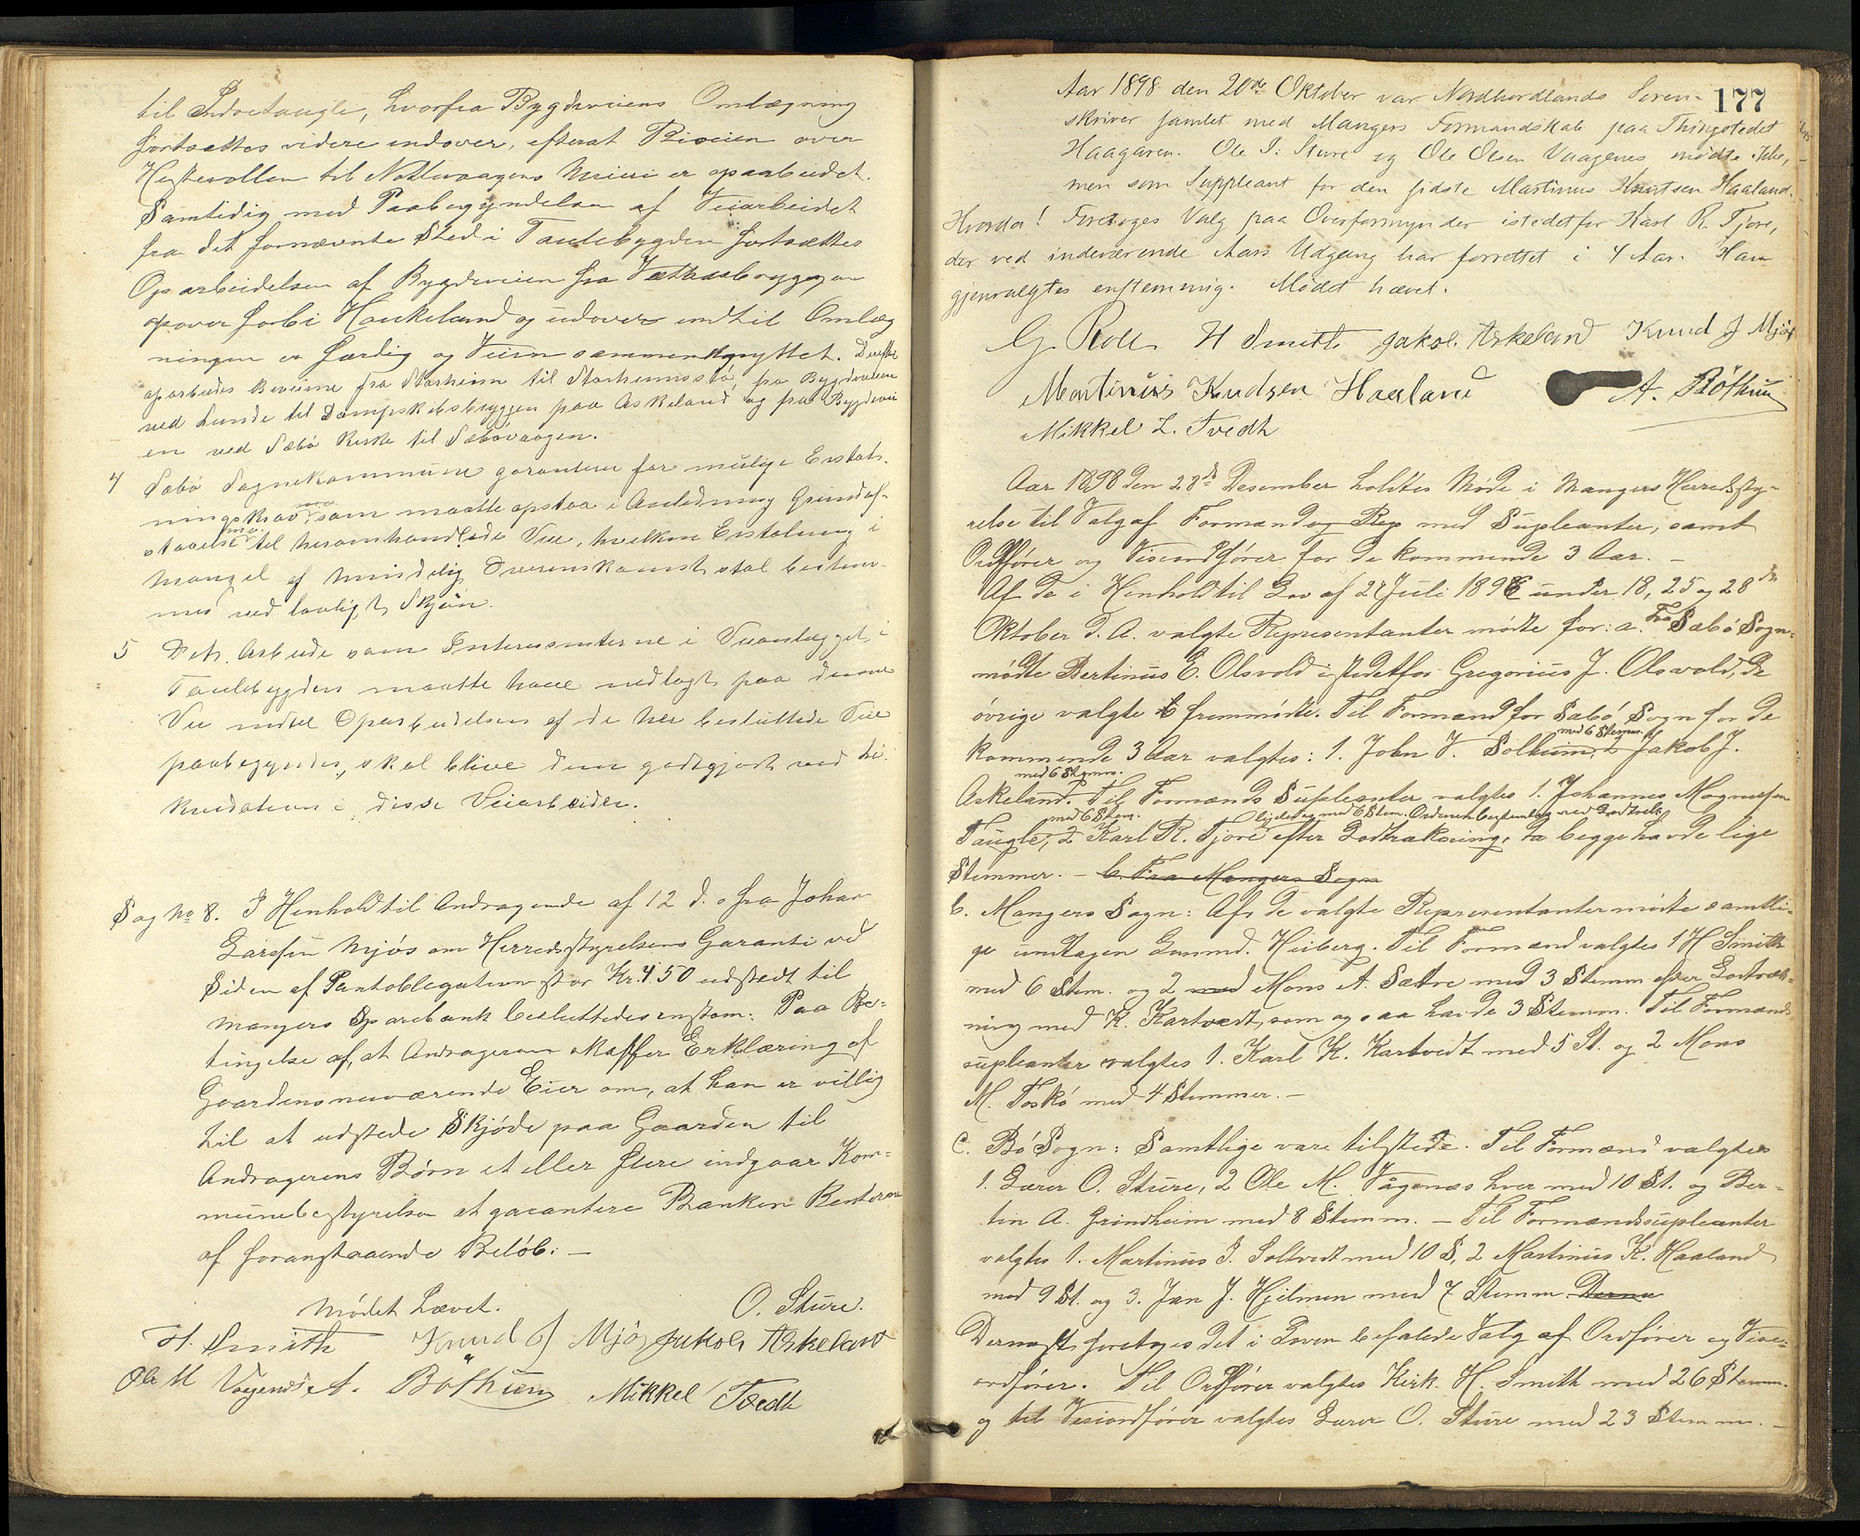 til Indretaugle, hvorfra Bygdeveiens Omlægning
fortsættes videre indover, efterat Biveien over
Hestevollen til Nottevaagens Minie er oparbeidet.
Samtidig med Paabegyndelsen af Veiarbeidet
fra det fornævnte Sted i Taulebygden fortsættes
Oparbeidelsen af Bygdeveien fra Vathusbryggen
opover forbi Haukeland og udover indtil Omlæg
ningen er færdig og Veien sammenknyttet. Derefter
oparbeides Biveiene fra Storheim til Storheimsstø, fra Bygdeveien
ved Lunde til Dampskibsbryggen paa Askeland og fra Bygdevei
en ved Sæbø Kirke til Sæbøvaagen.
4 Sæbø Sognekommune garanterer for mulige Erstat-
ningskrav som maatte opstaa i Anledning Grundaf-
staaelse til heromhandlede Veie, hvilken Erstatning i
Mangel af mindelig Overenskomst skal bestem-
mes ved lovligt Skjøn.
5 Det Arbeide som Interessenterne i Veianlægget i
Taulebygden maatte have nedlagt paa denne
Vei indtil Oparbeidelsen af de her besluttede Veie
paabegyndes, skal blive dem godtgjort ved Li-
kvidation i disse Veiarbeider.
Sag No 8. I Henhold til Andragende af 12 d. fra Johan
Larsen Mjøs om Herredsstyrelsens Garanti ved
Siden af Pantobligation stor Kr. 450 udstedt til
Mangers Sparebank besluttedes enstem: Paa Be-
tingelse af, at Andrageren skaffer Erklæring af
Gaardens nuværende Eier om, at han er villig
til at udstede Skjøde paa Gaarden til
Andragerens Børn et eller flere indgaar Kom-
munebestyrelsen at garantere Banken Renterne
af foranstaaende Beløb. —
Mødet hævet. O. Sture.
H. Smith Knud J Mjøs Jakob Askeland
Ole M Vågenes A. Bøthun Mikkel Tvedt
177
Aar 1898 den 20de Oktober var Nordhordlands Soren-
skriver samlet med Mangers Formandskab paa Thingstedet
Haagaren. Ole I. Sture og Ole Olsen Vaagenes mødte ikke,
men som Suppleant for den sidste Martinus Knutsen Haaland.
Hvorda! Foretoges Valg paa Overformynder istedetfor Karl R. Fjore,
der ved indeværende Aars Udgang har forrettet i 4 Aar. Han
gjenvalgtes enstemmig. Mødet hævet.
G Roll H Smith Jakob Askeland Knud J Mjøs
Martinus Knudsen Haaland A. Bøthun
Mikkel L. Tvedt
Aar 1898 den 28de Desember holdtes Møde i Mangers Herredssty-
relse til Valg af Formænd og Rep med Supleanter, samt
Ordfører og Viseordfører for de kommende 3 Aar. —
Af de i Henhold til Lov af 27 Juli 1896 under 18, 25 og 28de
Oktober d. A. valgte Representanter mødte for: a. Fra Sæbø Sogn:
mødte Bertinus E. Olsvold istedetfor Gregorius J. Olsvold, de
øvrige valgte 6 fremmødte. Til Formænd for Sæbø Sogn for de
kommende 3 Aar valgtes: 1. John V. Solheim, med 6 Stemm. 2 Jakob J.
Askeland. med 6 Stemm. Til Formænds Supleanter valgtes 1. Johannes Magnesen
Taugle, med 6 Stem. 2 Karl R. Fjore ligeledes med 6 Stem. Ordenen bestemtes ved Lodtræk. efter Lodtrækning, da begge havde lige
Stemmer. — b. Fra Mangers Sogn
b. Mangers Sogn: Af de valgte Representanter mødte samtli-
ge undtagen Gunnd. Heiberg. Til Formænd valgtes 1 H Smith
med 6 Stem. og 2 med Mons A. Sætre med 3 Stemm efter Lodtræk-
ning med K. Kartvedt, som ogsaa havde 3 Stemm. Til Formænds
supleanter valgtes 1. Karl K. Kartvedt med 5 St. og 2 Mons
M. Toskø med 4 Stemmer. —
c. Bø Sogn: Samtlige vare tilstede. Til Formænd valgtes
1. Lærer O. Sture, 2 Ole M. Vågenes hver med 10 St. og Ber-
tin A. Grindheim med 8 Stemm. — Til Formændssupleanter
valgtes 1. Martinus I. Soltvedt med 10 S, 2 Martinus K. Haaland
med 9 St. og 3. Jan J. Hjelmen med 7 Stemm. Derne
Dernæst foretoges det i Loven befalede Valg af Ordfører og Vise-
ordfører. Til Ordfører valgtes Kirk. H. Smith med 26 Stemm.
og til Viseordfører valgtes Lærer O. Sture med 23 Stemm. —